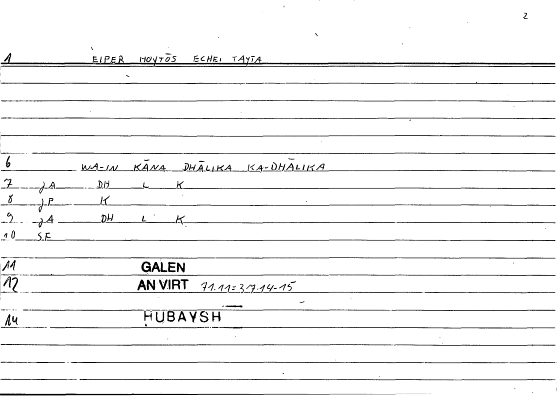 2
1 EIPER HOYTŌS ECHEI TAYTA
6 WA-IN KĀNA DHĀLIKA KA-DHĀLIKA
7 J.A DH L K
8 J.P K
9 J.A DH L K
10 S.F
11 GALEN
12 AN VIRT 71.11=37.14-15
14 ḤUBAYSH